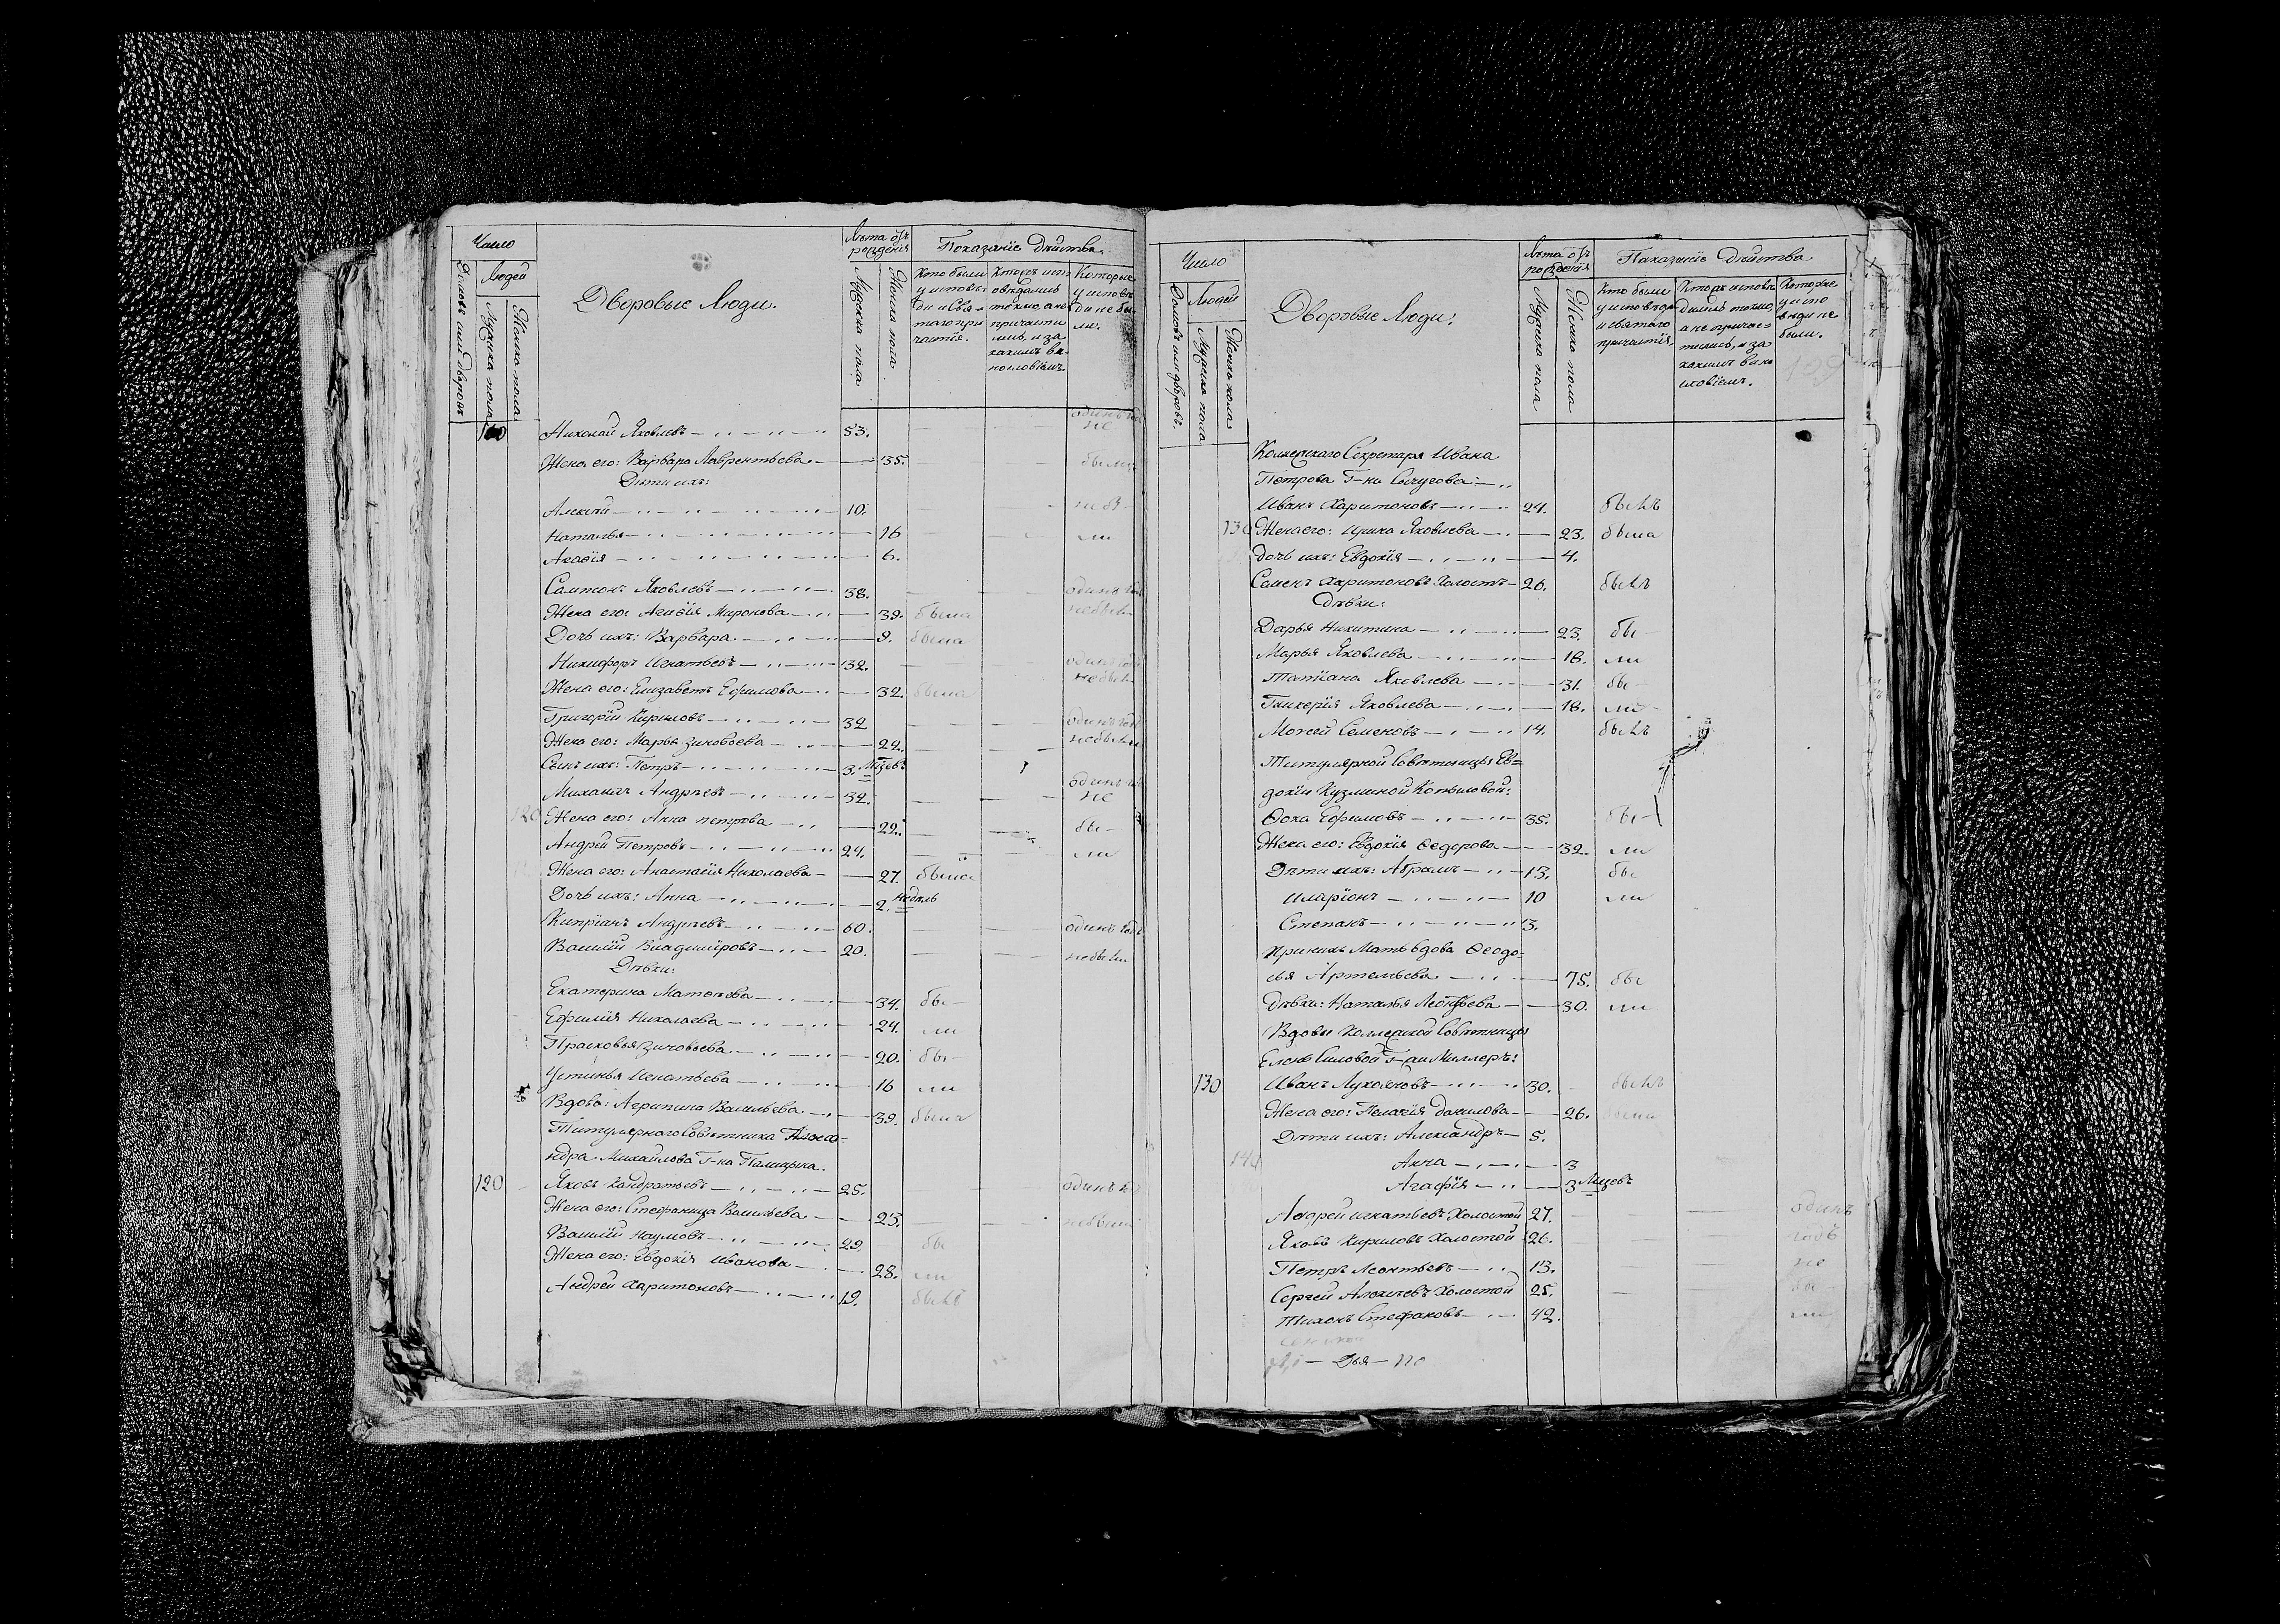 Число
Людей
Домовъ или дворовъ
Мужска пола
Женска пола
Дворовые Люди.
Лѣта отъ рожденія
Мужска пола
Женска пола
Показаніе дѣйства
Кто были
у исповѣ-
ди и Свя-
таго при
частія.
Которые исп
овѣдались
токмо, а не
причасти
лись, и за
какимъ ви-
нословіемъ.
Которые
у исповѣ
ди не бы
ли.
Николай Яковлевъ 53. одинъ не
Жена его: Варвара Лаврентьева 35. были
Дѣти ихъ:
Алексѣй 10.
Наталья 16
Агафія 6.
Сампсонъ Яковлевъ 38. одинъ
Жена его: Агафія Миронова 39. была
Дочь ихъ: Варвара 9. была
Никифоръ Игнатьевъ 32. одинъ
Жена его: Елизаветъ Ефимова 32. была
Григорій Кириловъ 32 одинъ годъ
Жена его: Марья Зиновьева 22.
Сынъ ихъ: Петръ 3. Мѣсяц
Михаилъ Андреевъ 32. одинъ не
120 Жена его: Анна петрова 22. бы-
Андрей Петровъ 24. ли
Жена его: Анастасія Николаева 27. была
Дочь ихъ: Анна 2. недѣль
Кипріянъ Андреевъ 60. одинъ годъ
Василій Владиміровъ 20. небыли
Дѣвки:
Екатерина Матвѣева 34. бы-
Ефимія Николаева 24. ли
Прасковья Зиновьева 20. бы-
Устинья Игнатьева 16 ли
Вдова: Агрипина Васильева 39. была
Титулярнаго Совѣтника Алекса-
ндра Михайлова Г-на
120 Яковъ Кондратьевъ 25. одинъ
Жена его: Стефанида Васильева 23. небыли
Василій Наумовъ 29. бы
Жена его: Евдокія Иванова 28. ли
Андрей Харитоновъ 19. былъ
Число
Людей
Домовъ или дворовъ
Мужска пола
Женска пола
Дворовые Люди:
Лѣта отъ рожденія
Мужска пола
Женска пола
Показаніе дѣйства
Кто были
у исповѣди
и святаго
причастія,
Которые исповѣ
дались токмо,
а не причас-
тились, и за
какимъ вино
словіемъ.
Которые
у испо
вѣди не
были.
109
Коллежскаго Секретаря Ивана
Петрова Г-на
Иванъ Харитоновъ 24. былъ
130 Жена его: Ирина Яковлева 23. была
дочь ихъ: Евдокія 4.
Семенъ Харитоновъ холостъ 26. былъ
Дѣвки:
Дарья Никитина 23. бы-
Марья Яковлева 18. ли
Татіана Яковлева 31. бы-
Гликерія Яковлева 18. ли
Моисей Семеновъ 14. былъ
Титулярной Совѣтницы Ев=
докіи Кузминой Копыловой:
Фока Ефимовъ 35. бы-
Жена его: Евдокія Федорова 32. ли
Дѣти ихъ: Абрамъ 13. бы
Иларіонъ 10 ли
Степанъ 3.
При нихъ Мать вдова Феодо-
сья Артемьева 75. бы
Дѣвки: Наталья Леонтьева 30. ли
Вдовы Коллежской Совѣтницы
Миллеръ:
130 Иванъ Лукояновъ 30. былъ
Жена его: Пелагія Данилова 26. была
Дѣти ихъ: Александръ 5.
140 Анна 3
Агафія 3 Мѣсяц
Андрей Игнатьевъ Холостой 27. одинъ
Яковъ Кириловъ Холостой 26. годъ
Петръ Леонтьевъ 13. не
Сергей Алексѣевъ Холостой 25. бы
Тихонъ Стефановъ 42. ли